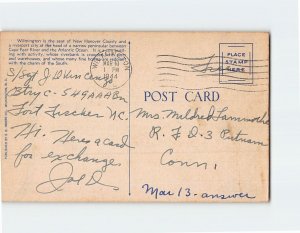 Wilmington is the seat of New Hanover County and
a newport city at the head of a narrow peninsula between
Cape Fear River and the Atlantic Ocean.
with activity, whose riverbank is crowded
and warehouses, and whose many fine homes are
with the charm of the South.
S/Sgt J D Vincenzo
Btry C - 549 AAABn
Fort Fisher N.C.
Hi. Heres a card
for exchange
Joe D.
MAR 10
PM
PLACE
STAMP
HERE
POST CARD
Mrs. Mildred
R. F. D. 3 Putnam
Conn.
Mar 13 - answer